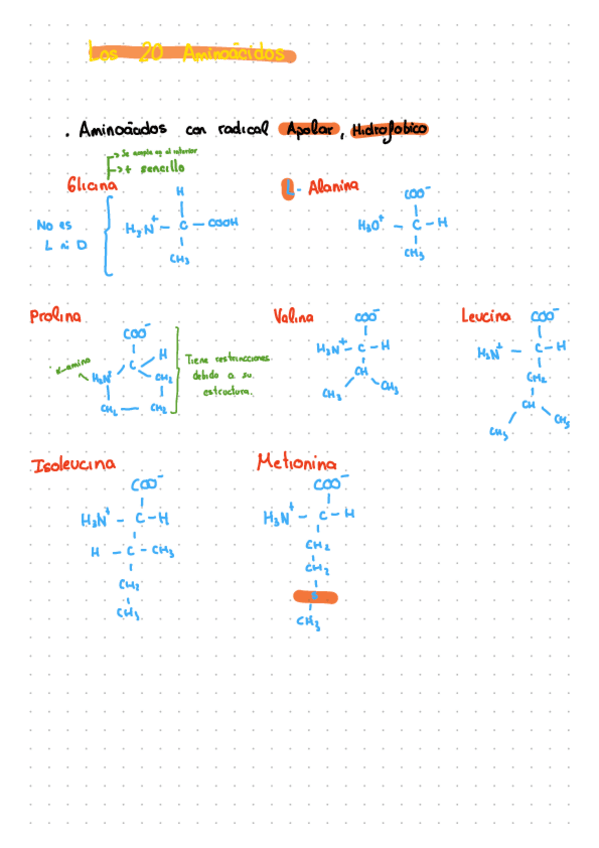 Los 20 Aminoácidos
. Aminoácidos con radical Apolar, Hidrofobico
→ Se emplea en el interior
→ + sencillo
Glicina
No es
L ni D
H
H3N+ – C – COOH
CH3
L- Alanina
COO-
H3O+ – C – H
CH3
Prolina
COO-
C H
H2N+ CH2
CH2 — CH2
Tiene restricciones
debido a su
estructura.
Valina
COO-
H3N+ – C – H
CH
CH3 CH3
Leucina
COO-
H3N+ – C – H
CH2
CH
CH3 CH3
Isoleucina
COO-
H3N+ – C – H
H – C – CH3
CH2
CH3
Metionina
COO-
H3N+ – C – H
CH2
CH2
S
CH3